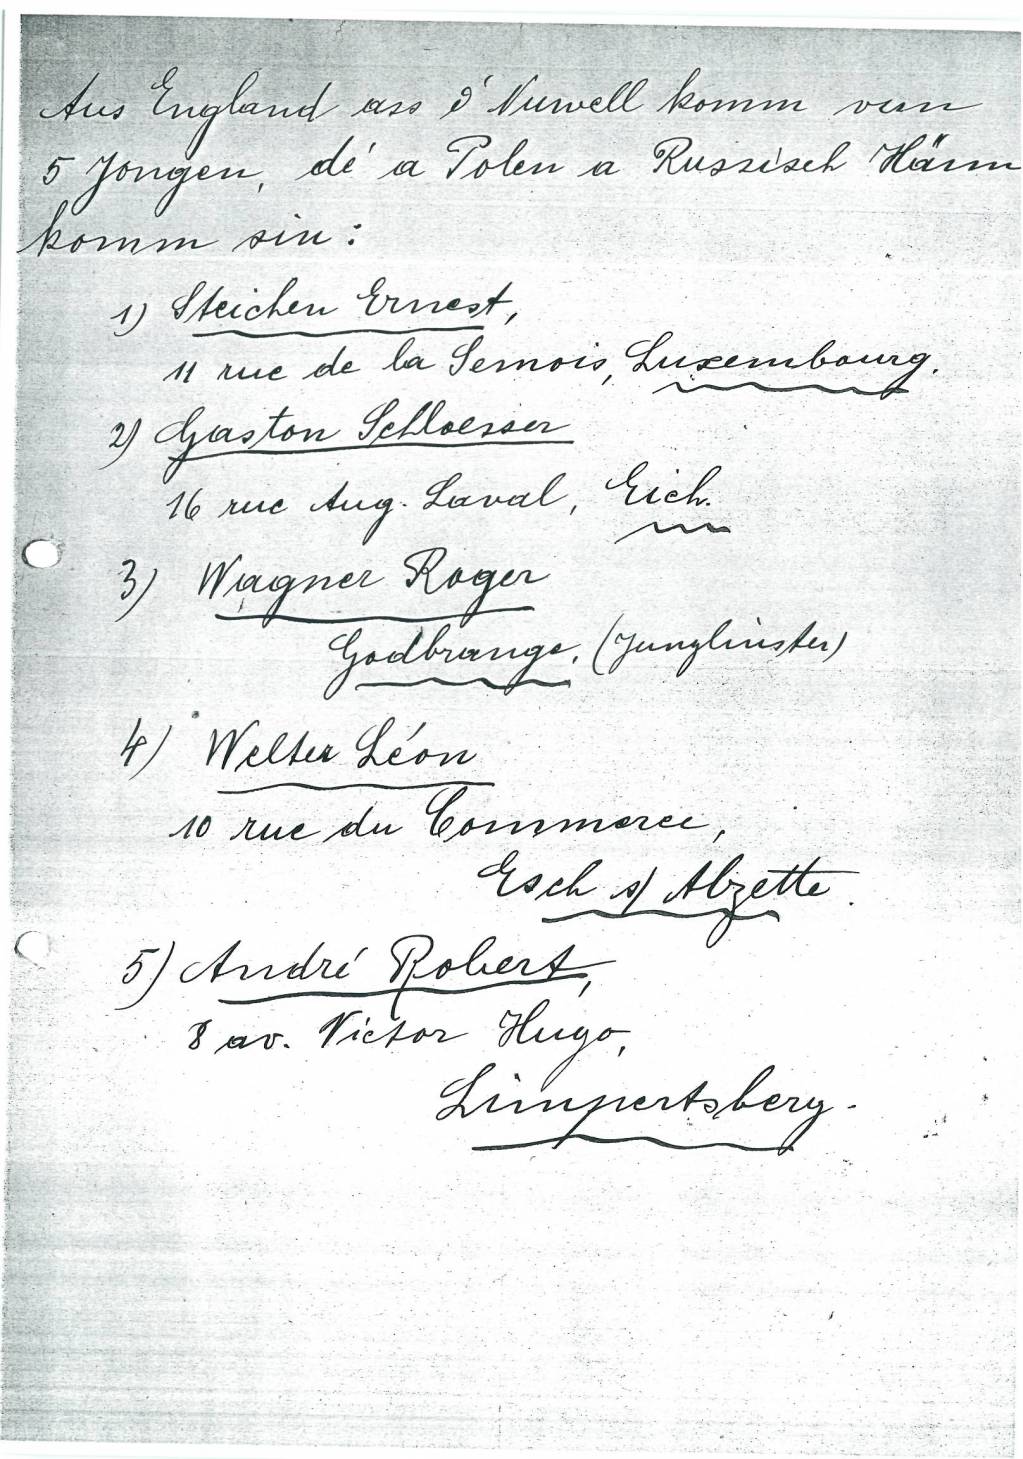 Aus England ass d' Nuwell komm vun
5 Jongen, dé a Polen a Russisch Hänn
komm sin :
1) Steichen Ernest,
11 rue de la Semois, Luxembourg.
2) Gaston Schloesser
16 rue Aug. Laval, Eich.
3) Wagner Roger
Godbrange. (Junglinster)
4) Welter Léon
10 rue du Commerce,
Esch s/ Alzette.
5) André Robert,
8 av. Victor Hugo,
Limpertsberg.